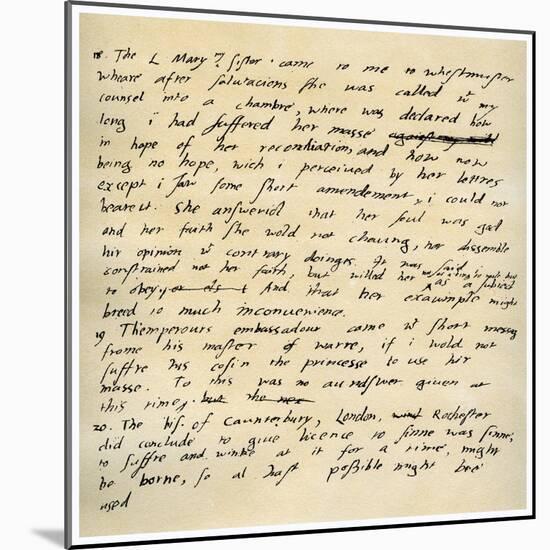 18. The L Mary my sister came to me to whestmuster
wheare after salutacions she was called wt my
counsel into a chambre, where was declared how
long i had suffered her masse against my will
in hope of her reconciliation, and how now
being no hope, wich i perceiued by her lettres
except i saw some short amendement, i could not
beare it. She answerid that her soul was god
and her faith she wold not chaung, nor dissemble
hir opinion wt contrary doinges. It was said i
constrained not her faith, but willed her not as a king to rule but
as a subiect
to obey, And that her exaumple might
breed to much inconuenienc.
19 Themperours embassadour came wt short messag
frome his master of warre, if i wold not
suffre his cosin the princesse to use hir
masse. To this was no aunswer giuen at
this time, but the nex
20. The bis. of Caunterbury, London, Rochester
did conclude to giue licence to sinne was sinne,
to suffre and winke at it for a time, might
be borne, so al hast possible might bee
used